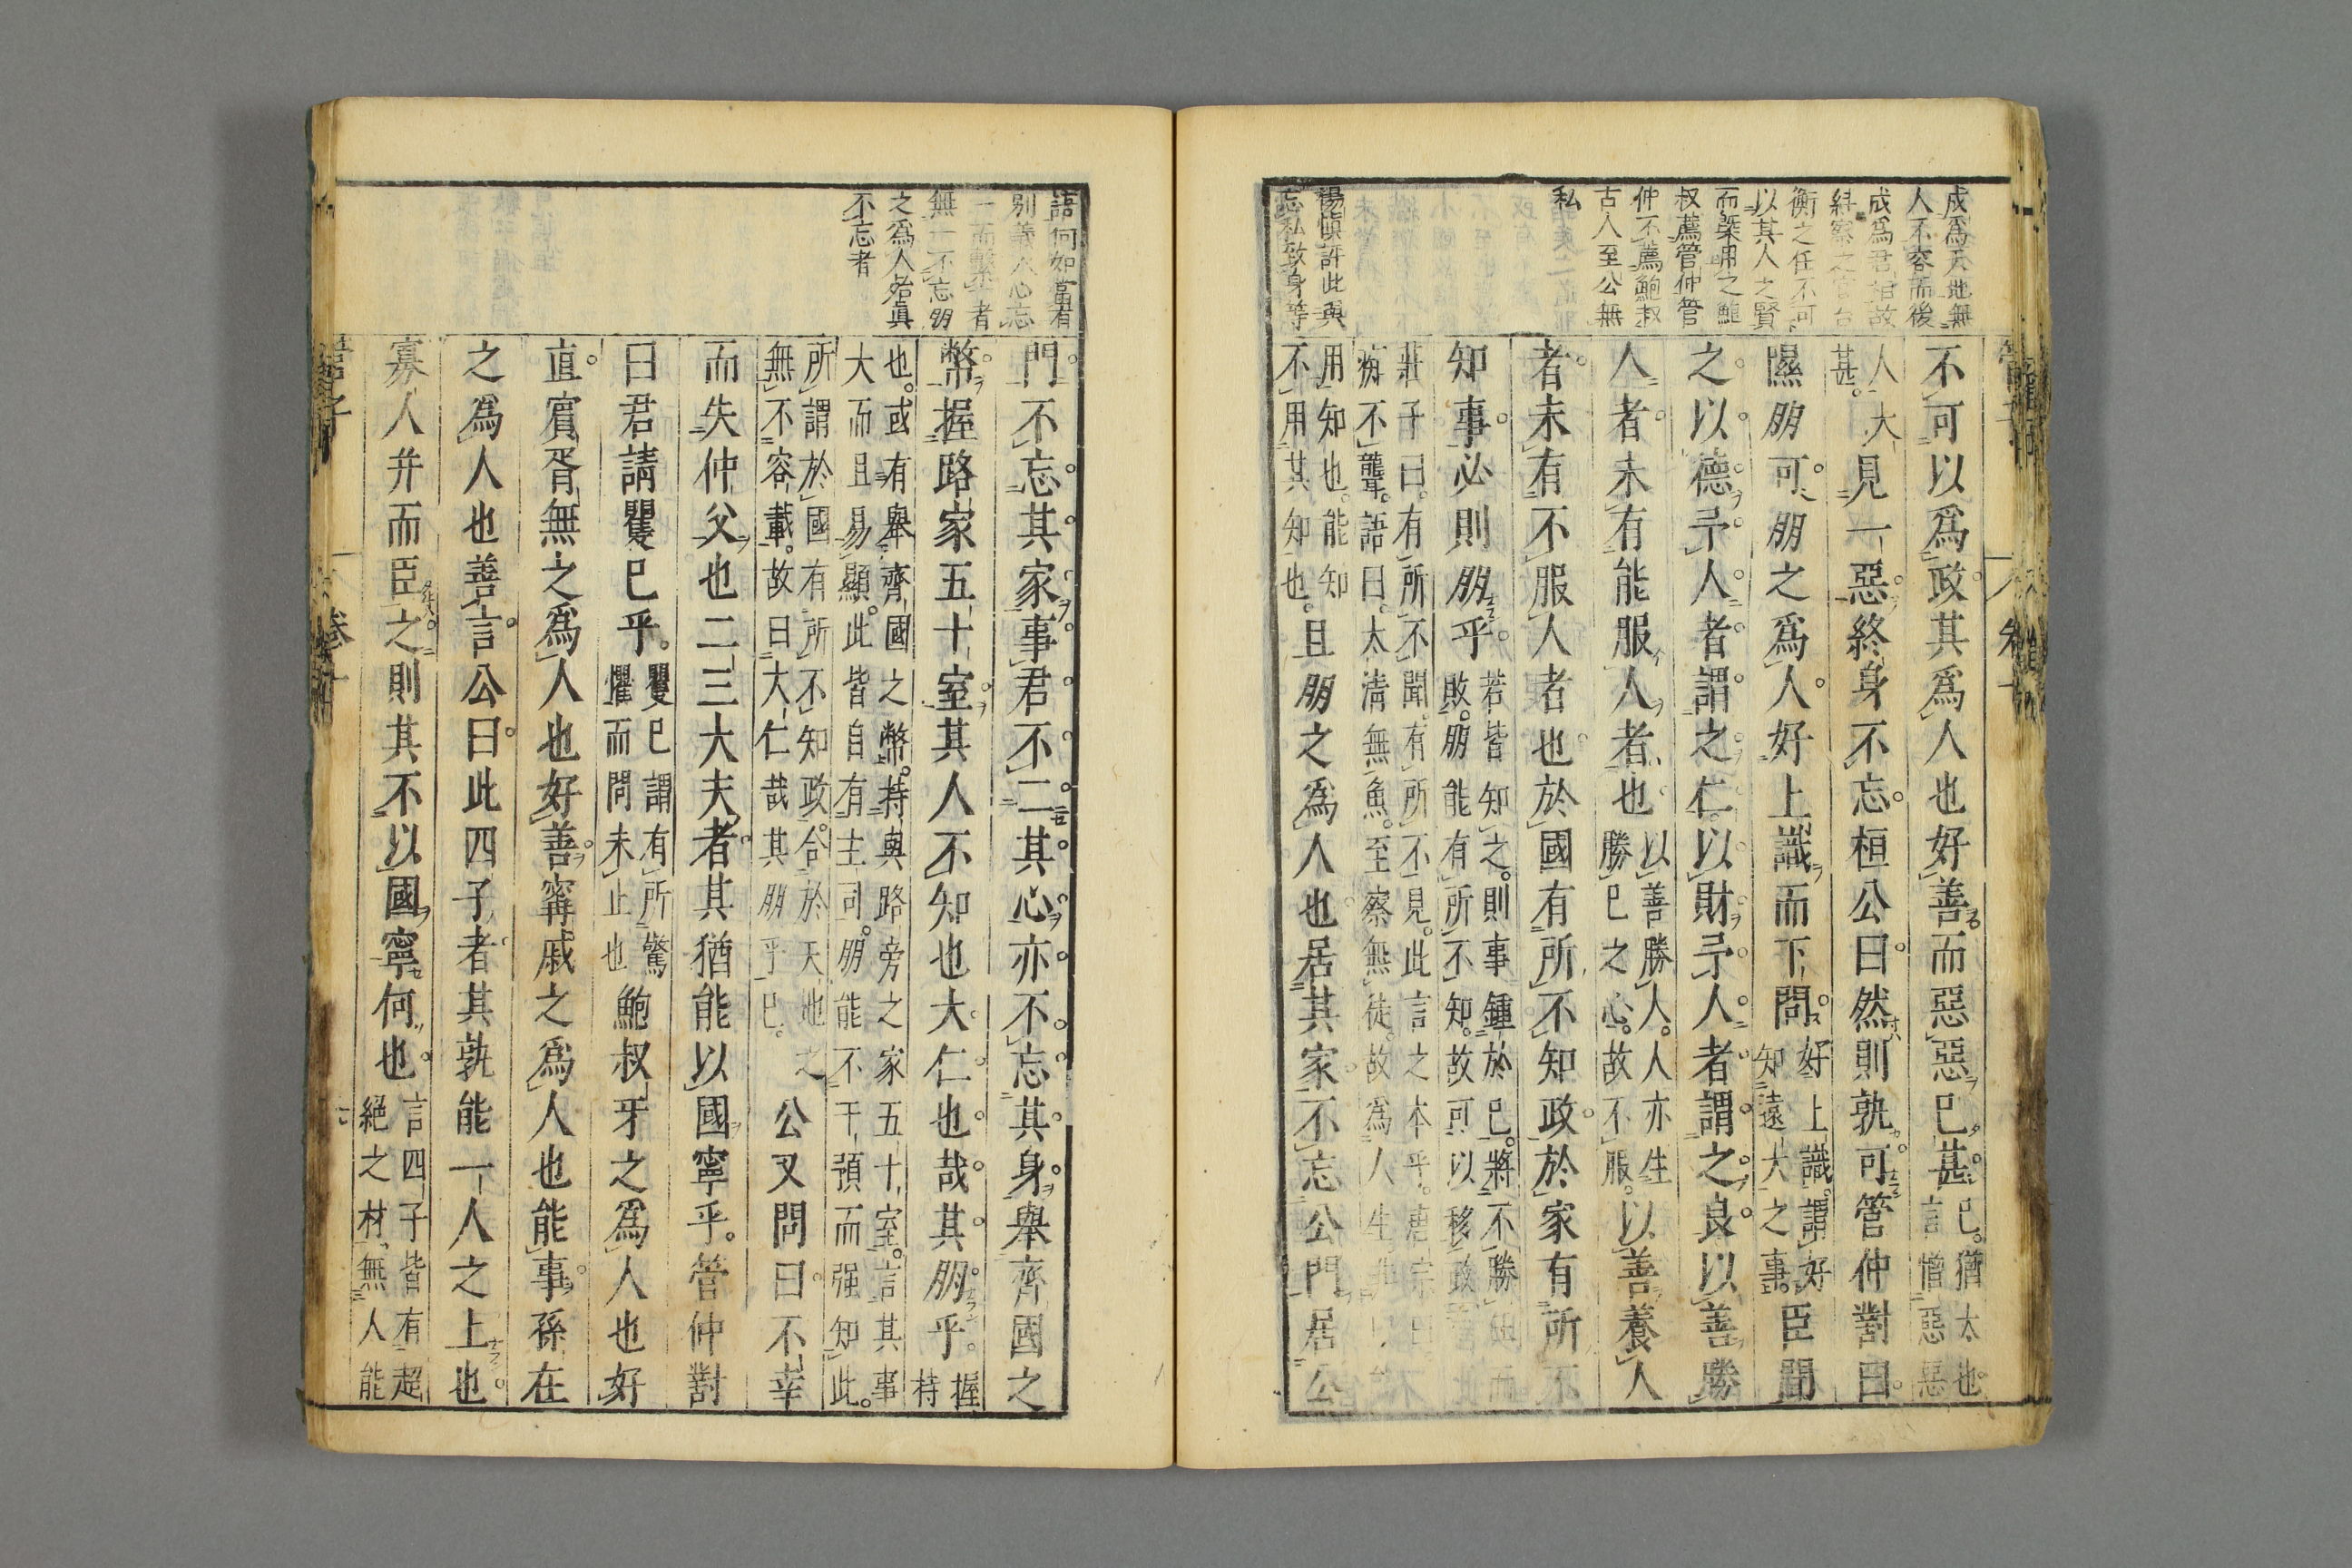 成爲天地無
人不容而後
成爲君相故
斜察之官台
衡之任不可
以其人之賢
而槩用之鮑
叔薦管仲管
仲不薦鮑叔
古人至公無
私
楊愼評此與
忘私致身等
不可以爲政其爲人也好善而惡惡已甚
已猶太也
言憎惡惡
人大
甚
見一惡終身不忘桓公曰然則孰可管仲對曰
隰朋可朋之爲人好上識而下問
好上識謂好
知遠大之事
臣聞
之以德予人者謂之仁以財予人者謂之良以善勝
人者未有能服人者也
以善勝人人亦生
勝已之心故不服
以善養人
者未有不服人者也於國有所不知政於家有所不
知事必則朋乎
若皆知之則事鍾於已將不勝而
敗朋能有所不知故可以移政
莊子曰有所不聞有所不見此言之本乎唐宗曰不
痴不聾語曰太淸無魚至察無徒故爲人
用知也能知
不用其知也
且朋之爲人也居其家不忘公門居公
語何如當有
別義人心忘
一而繫一者
無一不忘朋
之爲人始眞
不忘者
門不忘其家事君不二其心亦不忘其身擧齊國之
幣握路家五十室其人不知也大仁也哉其朋乎
握
持
也或有擧齊國之幣持與路旁之家五十室言其事
大而且易顯此皆自有主司朋能不干預而强知此
所謂於國有所不知政合於天地之
無不容載故曰大仁哉其朋乎已
公又問曰不幸
而失仲父也二三大夫者其猶能以國寧乎管仲對
曰君請矍已乎
矍已謂有所驚
懼而問未止也
鮑叔牙之爲人也好
直賓胥無之爲人也好善甯戚之爲人也能事孫在
之爲人也善言公曰此四子者其孰能一人之上也
寡人并而臣之則其不以國寧何也
言四子皆有超
絕之材無人能
管子
卷十
七